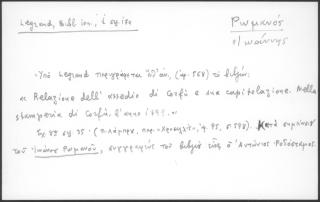 Legrand, Bibl. ion., ἰ σχίσα
Ρωμανός
Ἰωάννης
Ὑπὸ Legrand περιγράφεται (ἀρ. 568) τὸ βιβλίον:
« Relazione dell' assedio di Corfù e sua capitolazione. Nella
stamperia di Corfù, l'anno 1799. »
Εἰς 8ον σχ. 25. (ἀρ. 95, σ. 598). Κατὰ σημείωσιν
τοῦ Ἰωάννου Ρωμανοῦ, συγγραφεὺς τοῦ βιβλίου εἶναι ὁ Ἀντώνιος Ροδόσταμος.